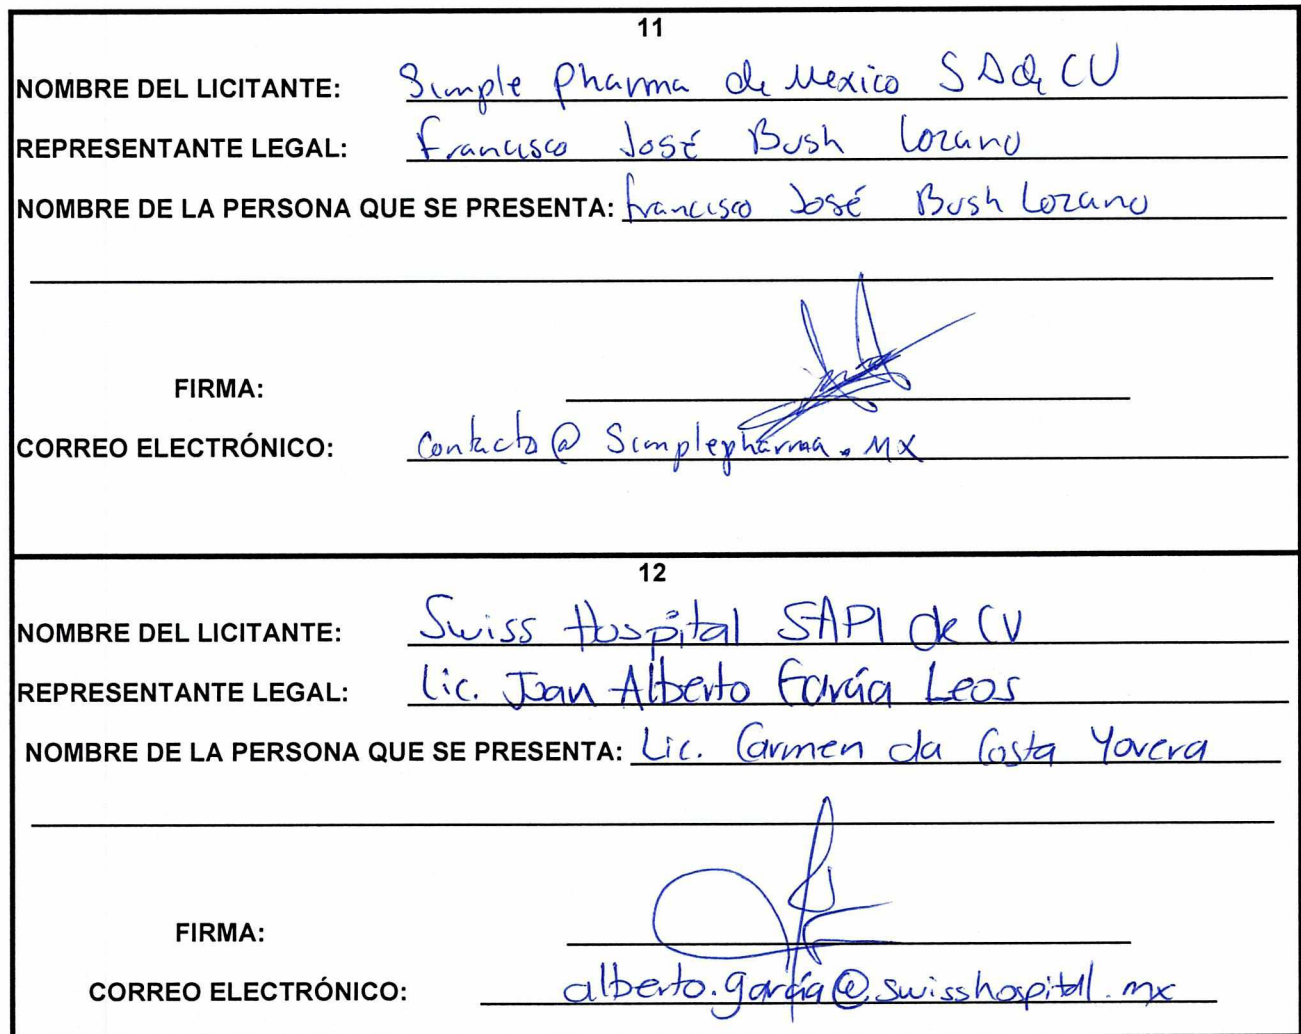 11
NOMBRE DEL LICITANTE: Simple Pharma de Mexico SA de CV
REPRESENTANTE LEGAL: Francisco José Bush Lozano
NOMBRE DE LA PERSONA QUE SE PRESENTA: Francisco José Bush Lozano
FIRMA:
CORREO ELECTRÓNICO: Contacto@Simplepharma.mx
12
NOMBRE DEL LICITANTE: Swiss Hospital SAPI de CV
REPRESENTANTE LEGAL: Lic. Juan Alberto García Leos
NOMBRE DE LA PERSONA QUE SE PRESENTA: Lic. Carmen da Costa Yovera
FIRMA:
CORREO ELECTRÓNICO: alberto.garcia@swisshospital.mx